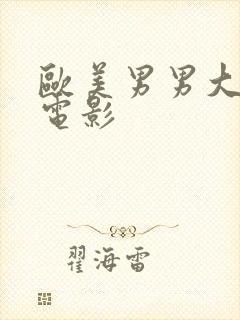 歐美男男大
電影
翟海雷